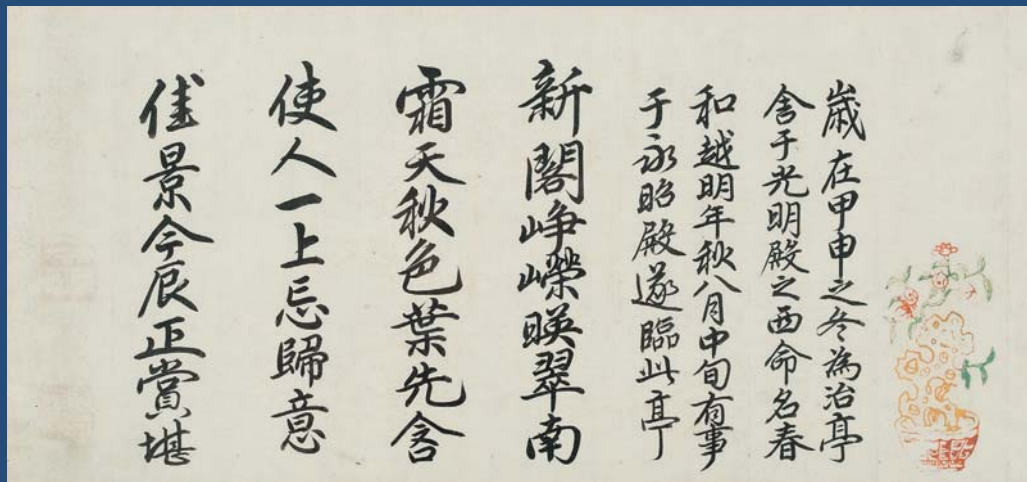 歳在甲申之冬為治亭
舍于光明殿之西命名春
和越明年秋八月中旬有事
于永昭殿遂臨此亭
新閣崢嶸暎翠南
霜天秋色葉先含
使人一上忘歸意
佳景今辰正賞堪